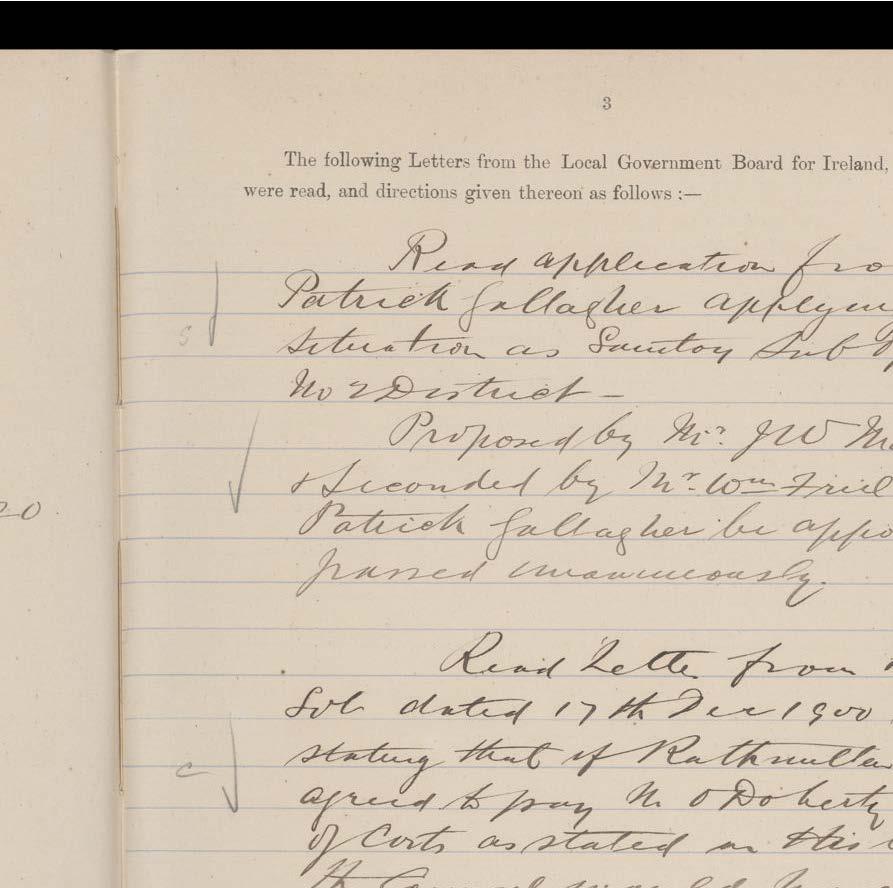 3
The following Letters from the Local Government Board for Ireland,
were read, and directions given thereon as follows :—
Read application fro
Patrick Gallagher applyin
situation as Sanitary Sub O
No 2 District –
Proposed by Mr. J W Mc
& Seconded by Mr. Wm Friel
Patrick Gallagher be appo
passed unanimously.
20
Read Letter from
Sol. dated 17th Dec 1900
stating that if Rathmullan
agreed to pay N. O Doherty
of Costs as stated in this
the Council